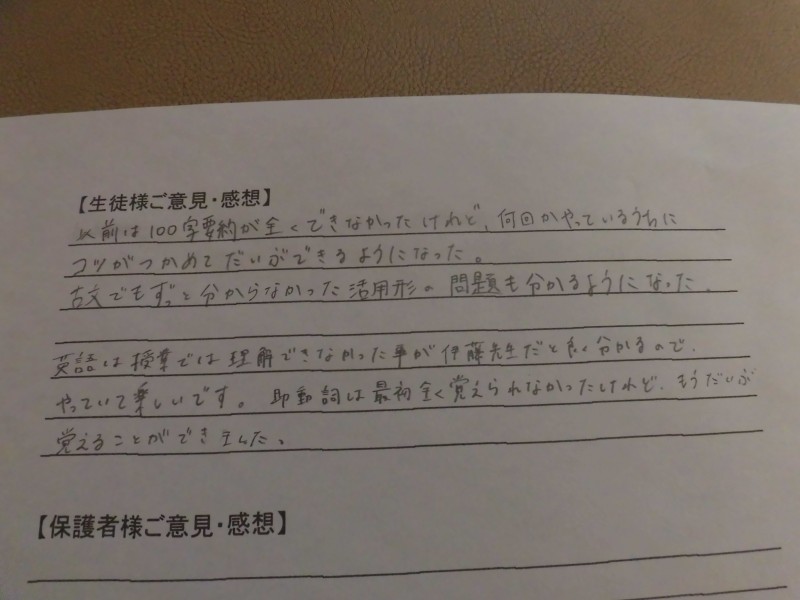 【生徒様ご意見・感想】
以前は100字要約が全くできなかったけれど、何回かやっているうちに
コツがつかめてだいぶできるようになった。
古文でもずっと分からなかった活用形の問題も分かるようになった。
英語は授業では理解できなかった事が伊藤先生だと良く分かるので、
やっていて楽しいです。即動詞は最初全く覚えられなかったけれど、もうだいぶ
覚えることができました。
【保護者様ご意見・感想】